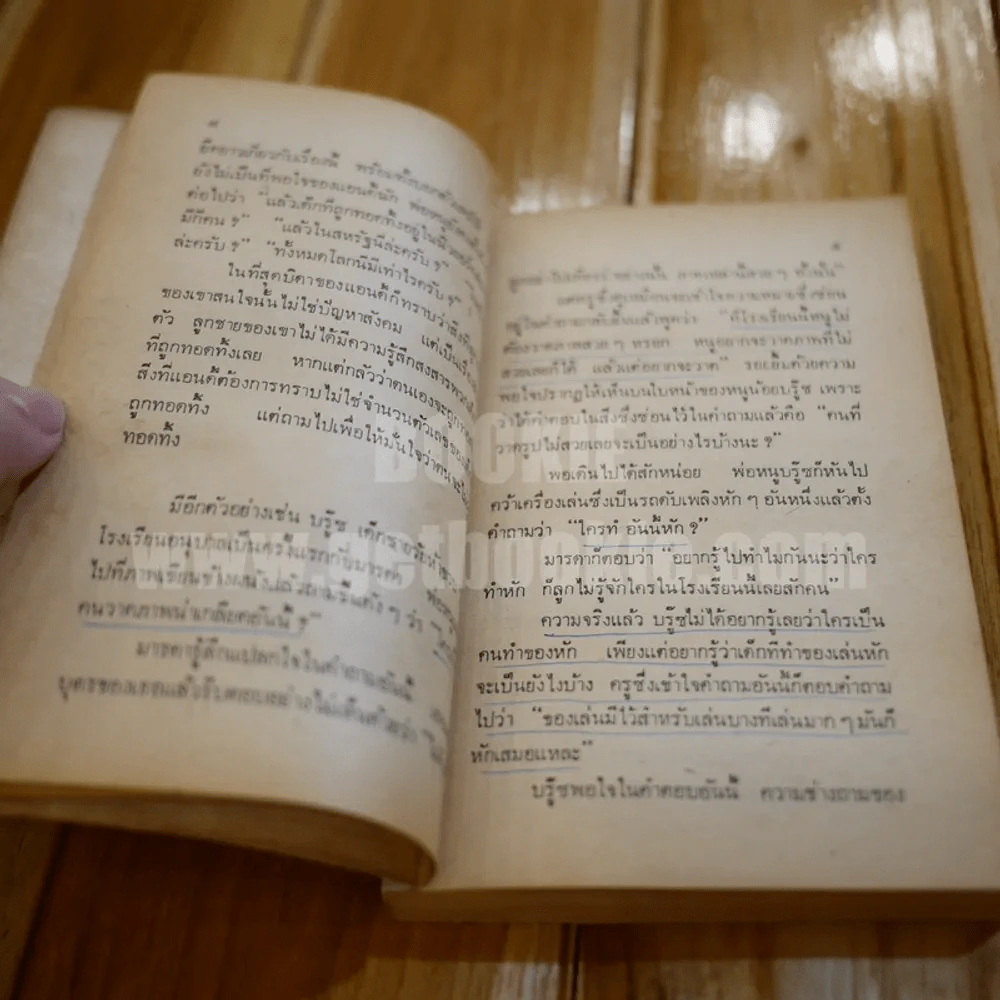 อีกยาวเกี่ยวกับเรื่องนี้ พร้อมทั้ง
ยังไม่เป็นที่พอใจของแอนดี้นัก
ต่อไปว่า “แล้วเด็กที่ถูกทอดทิ้งอยู่ในนิวยอร์ค
มีกี่คน ?” “แล้วในสหรัฐนี่ล่ะครับ ?”
ล่ะครับ ?” “ทั้งหมดโลกนี้มีเท่าไรครับ ?”
ในที่สุดบิดาของแอนดี้ก็ทราบว่าสิ่งที่
ของเขาสนใจนั้นไม่ใช่ปัญหาสังคม แต่เป็นเรื่อง
ตัว ลูกชายของเขาไม่ได้มีความรู้สึกสงสาร
ที่ถูกทอดทิ้งเลย หากแต่กลัวว่าตนเองจะถูก
สิ่งที่แอนดี้ต้องการทราบไม่ใช่จำนวนตัวเลขของ
ถูกทอดทิ้ง แต่ถามไปเพื่อให้มั่นใจว่าตนจะไม่
ทอดทิ้ง
มีอีกตัวอย่างเช่น บรู๊ซ เด็กชายวัยห้า
โรงเรียนอนุบาลเป็นครั้งแรกกับมารดา
ไปที่ภาพเขียนข้างผนังแล้วถามขึ้นดัง ๆ ว่า
คนวาดภาพน่าเกลียดอันนี้ ?”
มารดารู้สึกแปลกใจในคำถามอันนี้
บุตรของเธอแล้วรีบตอบ
๕
แต่ครูซึ่งดูเหมือนจะเข้าใจความหมายซึ่งซ่อน
อยู่ในคำถามกลับยิ้มแล้วพูดว่า “ที่โรงเรียนนี้หนูไม่
ต้องวาดภาพสวย ๆ หรอก หนูอยากจะวาดภาพที่ไม่
สวยเลยก็ได้ แล้วแต่อยากจะวาด” รอยยิ้มด้วยความ
พอใจปรากฏให้เห็นบนใบหน้าของหนูน้อยบรู๊ซ เพราะ
ว่าได้คำตอบในสิ่งซึ่งซ่อนไว้ในคำถามแล้วคือ “คนที่
วาดรูปไม่สวยเลยจะเป็นอย่างไรบ้างนะ ?”
พอเดินไปได้สักหน่อย พ่อหนูบรู๊ซก็หันไป
คว้าเครื่องเล่นซึ่งเป็นรถดับเพลิงหัก ๆ อันหนึ่งแล้วตั้ง
คำถามว่า “ใครทำ อันนี้หัก ?”
มารดาก็ตอบว่า “อยากรู้ไปทำไมกันนะว่าใคร
ทำหัก ก็ลูกไม่รู้จักใครในโรงเรียนนี้เลยสักคน”
ความจริงแล้ว บรู๊ซไม่ได้อยากรู้เลยว่าใครเป็น
คนทำของหัก เพียงแต่อยากรู้ว่าเด็กที่ทำของเล่นหัก
จะเป็นยังไงบ้าง ครูซึ่งเข้าใจคำถามอันนี้ก็ตอบคำถาม
ไปว่า “ของเล่นมีไว้สำหรับเล่นบางทีเล่นมาก ๆ มันก็
หักเสมอแหละ”
บรู๊ซพอใจในคำตอบอันนี้ ความช่างถามของ
www.getbookie.com